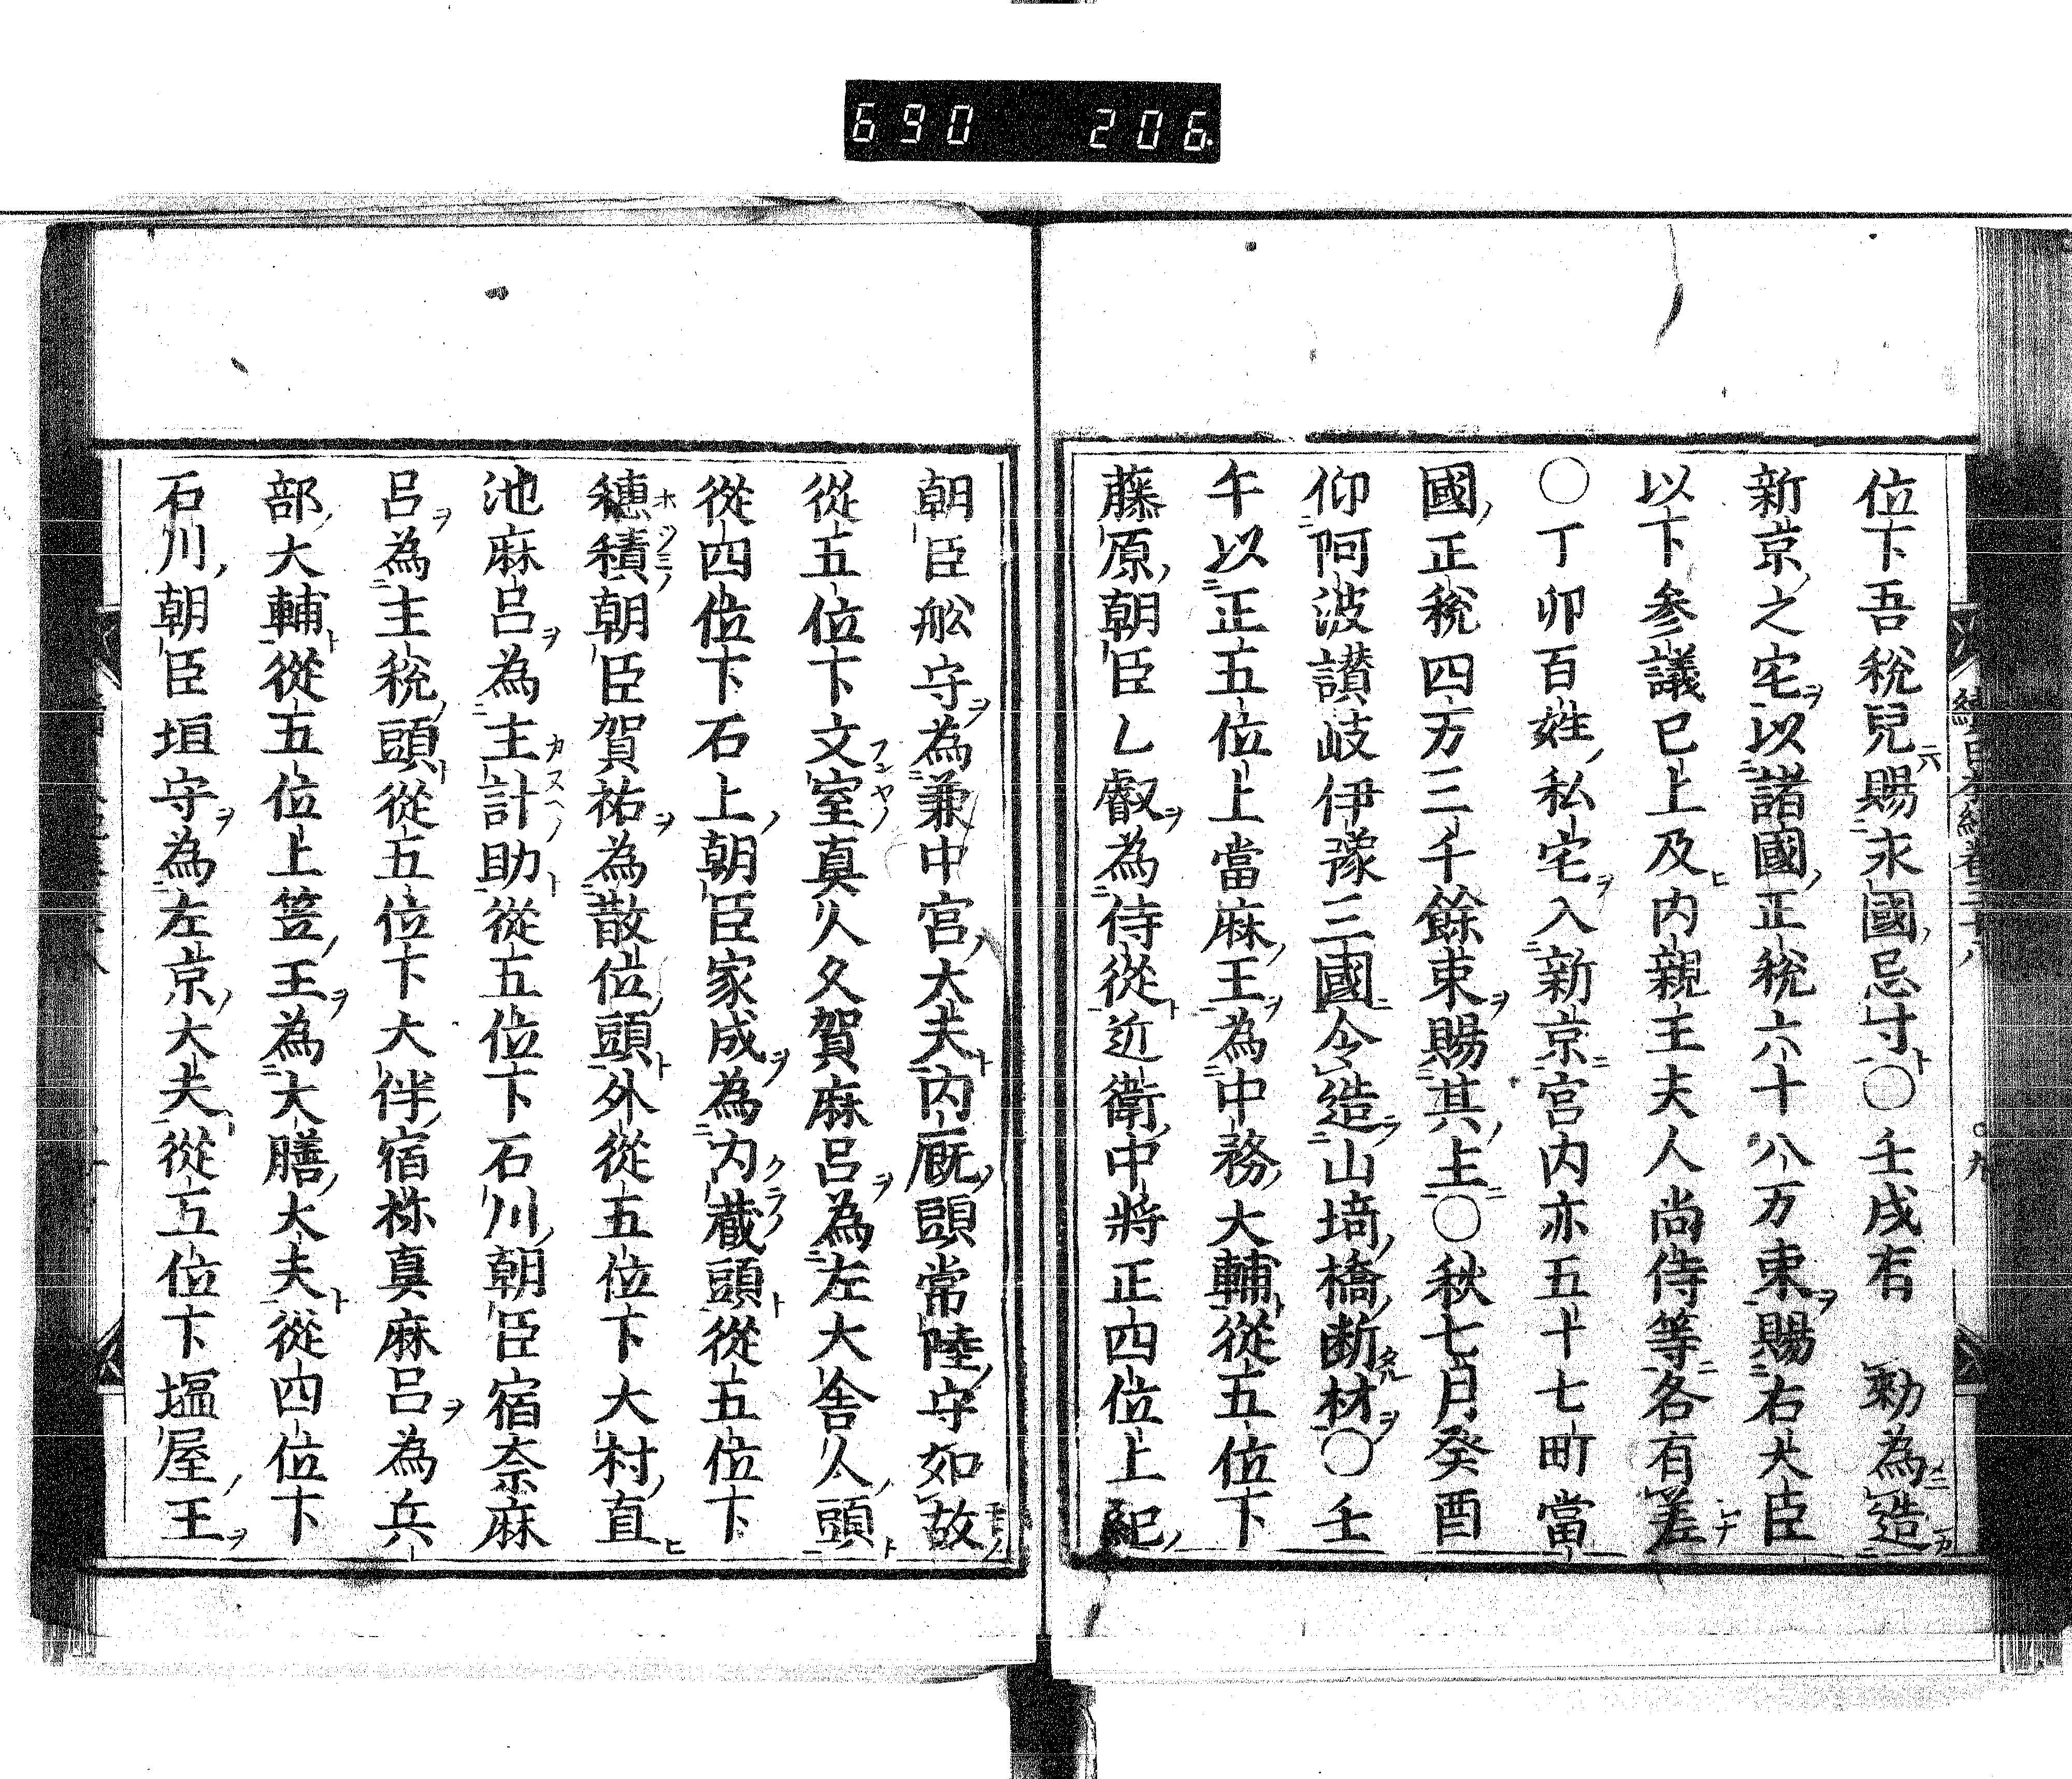 690 206
位下吾税兒賜永國忌寸○壬戌有 勅為造
新京之宅以諸國正税六十八万束賜右大臣
以下参議已上及内親王夫人尚侍等各有差
○丁卯百姓私宅入新京宮内亦五十七町當
國正税四万三千餘束賜其主○秋七月癸酉
仰阿波讃岐伊豫三國令造山埼橋断材○壬
午以正五位上當麻王為中務大輔從五位下
藤原朝臣乙叡為侍從近衛中將正四位上紀
朝臣舩守為兼中宮大夫内厩頭常陸守如故
從五位下文室真人久賀麻呂為左大舎人頭
從四位下石上朝臣家成為内蔵頭從五位下
穗積朝臣賀祐為散位頭外從五位下大村直
池麻呂為主計助從五位下石川朝臣宿奈麻
呂為主税頭從五位下大伴宿祢真麻呂為兵
部大輔從五位上笠王為大膳大夫從四位下
石川朝臣垣守為左京大夫從五位下塩屋王